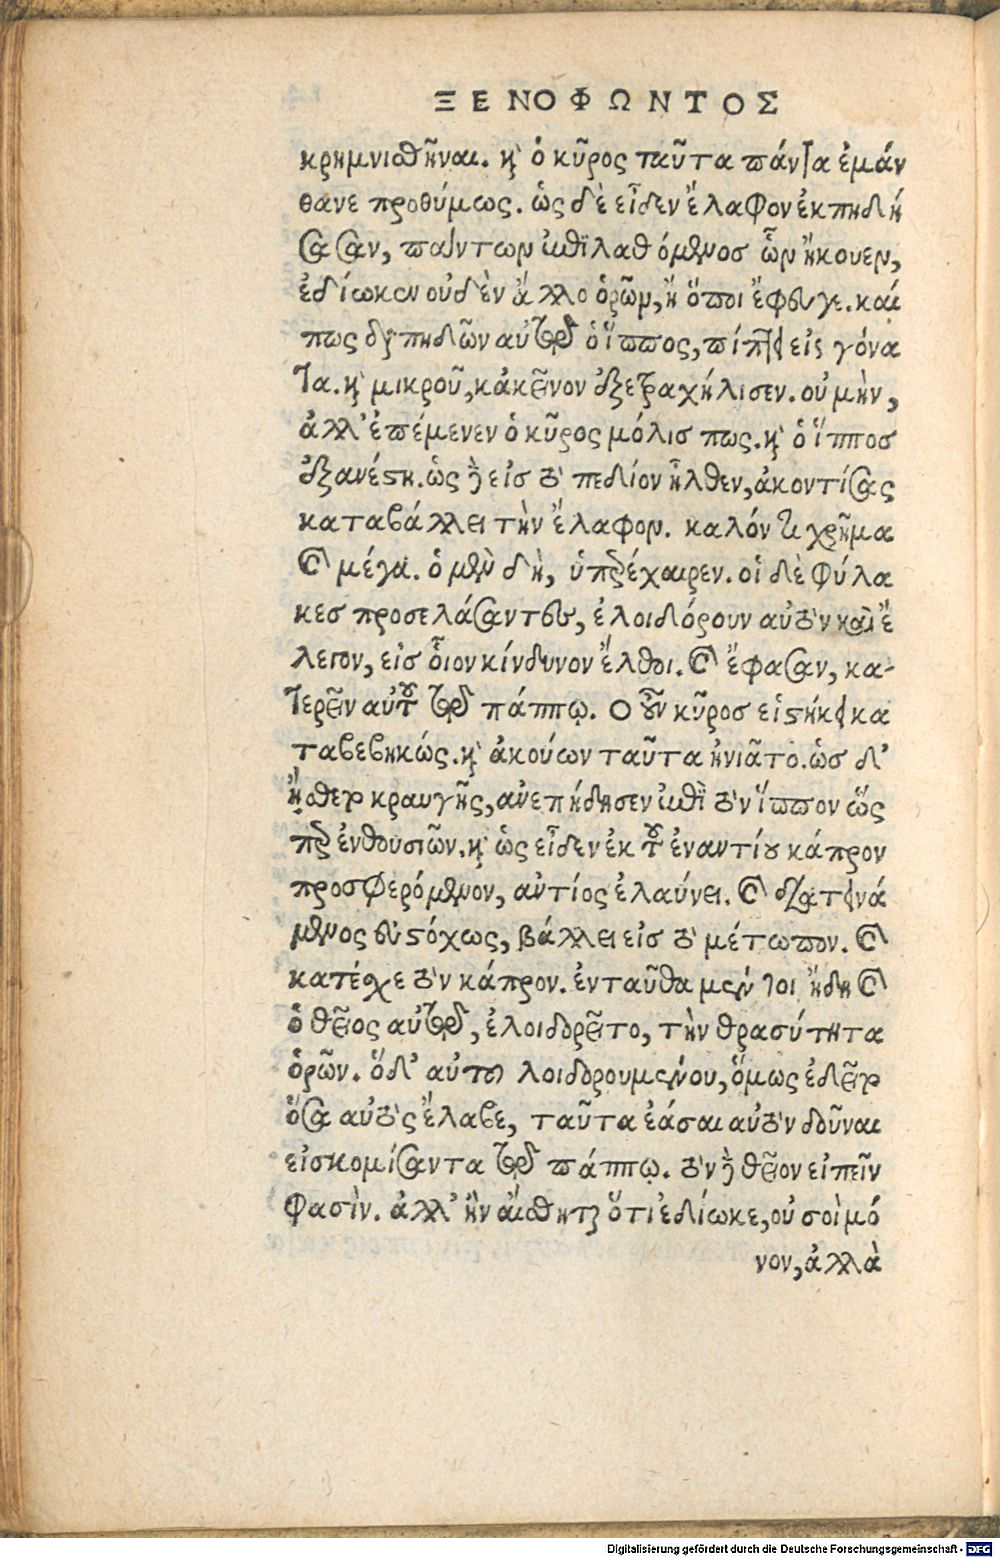 ΞΕΝΟΦΩΝΤΟΣ
κρημνισθῆναι. καὶ ὁ κῦρος ταῦτα πάντα ἐμάν
θανε προθύμως. ὡς δὲ εἶδεν ἔλαφον ἐκπηδή
σασαν, πάντων ἐπιλαθόμενος ὧν ἤκουεν,
ἐδίωκεν οὐδὲν ἄλλο ὁρῶν, ἢ ὅποι ἔφευγε. καί
πως διαπηδῶν αὐτῷ ὁ ἵππος, πίπτει εἰς γόνα
τα. καὶ μικροῦ, κἀκεῖνον ἐξετραχήλισεν. οὐ μὴν,
ἀλλ' ἐπέμενεν ὁ κῦρος μόλις πως. καὶ ὁ ἵππος
ἐξανέστη. ὡς δὲ εἰς τὸ πεδίον ἦλθεν, ἀκοντίσας
καταβάλλει τὴν ἔλαφον. καλόν τι χρῆμα
καὶ μέγα. ὁ μὲν δὴ, ὑπερέχαιρεν. οἱ δὲ φύλα
κες προσελάσαντες, ἐλοιδόρουν αὐτὸν καὶ ἔ
λεγον, εἰς οἷον κίνδυνον ἔλθοι. καὶ ἔφασαν, κα-
τερεῖν αὐτοῦ τῷ πάππῳ. Ο οὖν κῦρος εἱστήκει κα
ταβεβηκώς. καὶ ἀκούων ταῦτα ἠνιᾶτο. ὡς δ'
ᾔσθετο κραυγῆς, ἀνεπήδησεν ἐπὶ τὸν ἵππον ὥς
περ ἐνθουσιῶν. καὶ ὡς εἶδεν ἐκ τοῦ ἐναντίου κάπρον
προσφερόμενον, ἀντίος ἐλαύνει. καὶ διατεινά
μενος εὐστόχως, βάλλει εἰς τὸ μέτωπον. καὶ
κατέσχε τὸν κάπρον. ἐνταῦθα μέν τοι ἤδη καὶ
ὁ θεῖος αὐτῷ, ἐλοιδορεῖτο, τὴν θρασύτητα
ὁρῶν. ὅδ' αὐτοῦ λοιδορουμένου, ὅμως ἐδεῖτο
ὅσα αὐτὸς ἔλαβε, ταῦτα ἐάσαι αὐτὸν δοῦναι
εἰσκομίσαντα τῷ πάππῳ. τὸν δὲ θεῖον εἰπεῖν
φασὶν. ἀλλ' ἢν αἴσθηται ὅτι ἐδίωκε, οὐ σοὶ μό
νον, ἀλλὰ
Digitalisierung gefördert durch die Deutsche Forschungsgemeinschaft - DFG